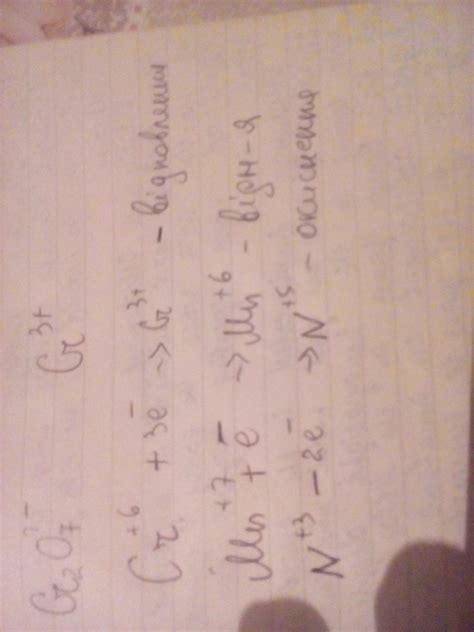 Cr₂O₇²⁻ Cr³⁺
Cr⁺⁶ + 3e⁻ → Cr³⁺ - відновлення
Mn⁺⁷ + e⁻ → Mn⁺⁶ - відн-я
N⁺³ - 2e⁻ → N⁺⁵ - окиснення